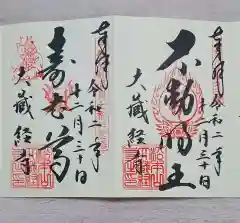 奉拝
令和二年
十二月三十日
不動明王
大蔵経寺
奉拝
令和二年
十二月三十日
寿老尊
大蔵経寺